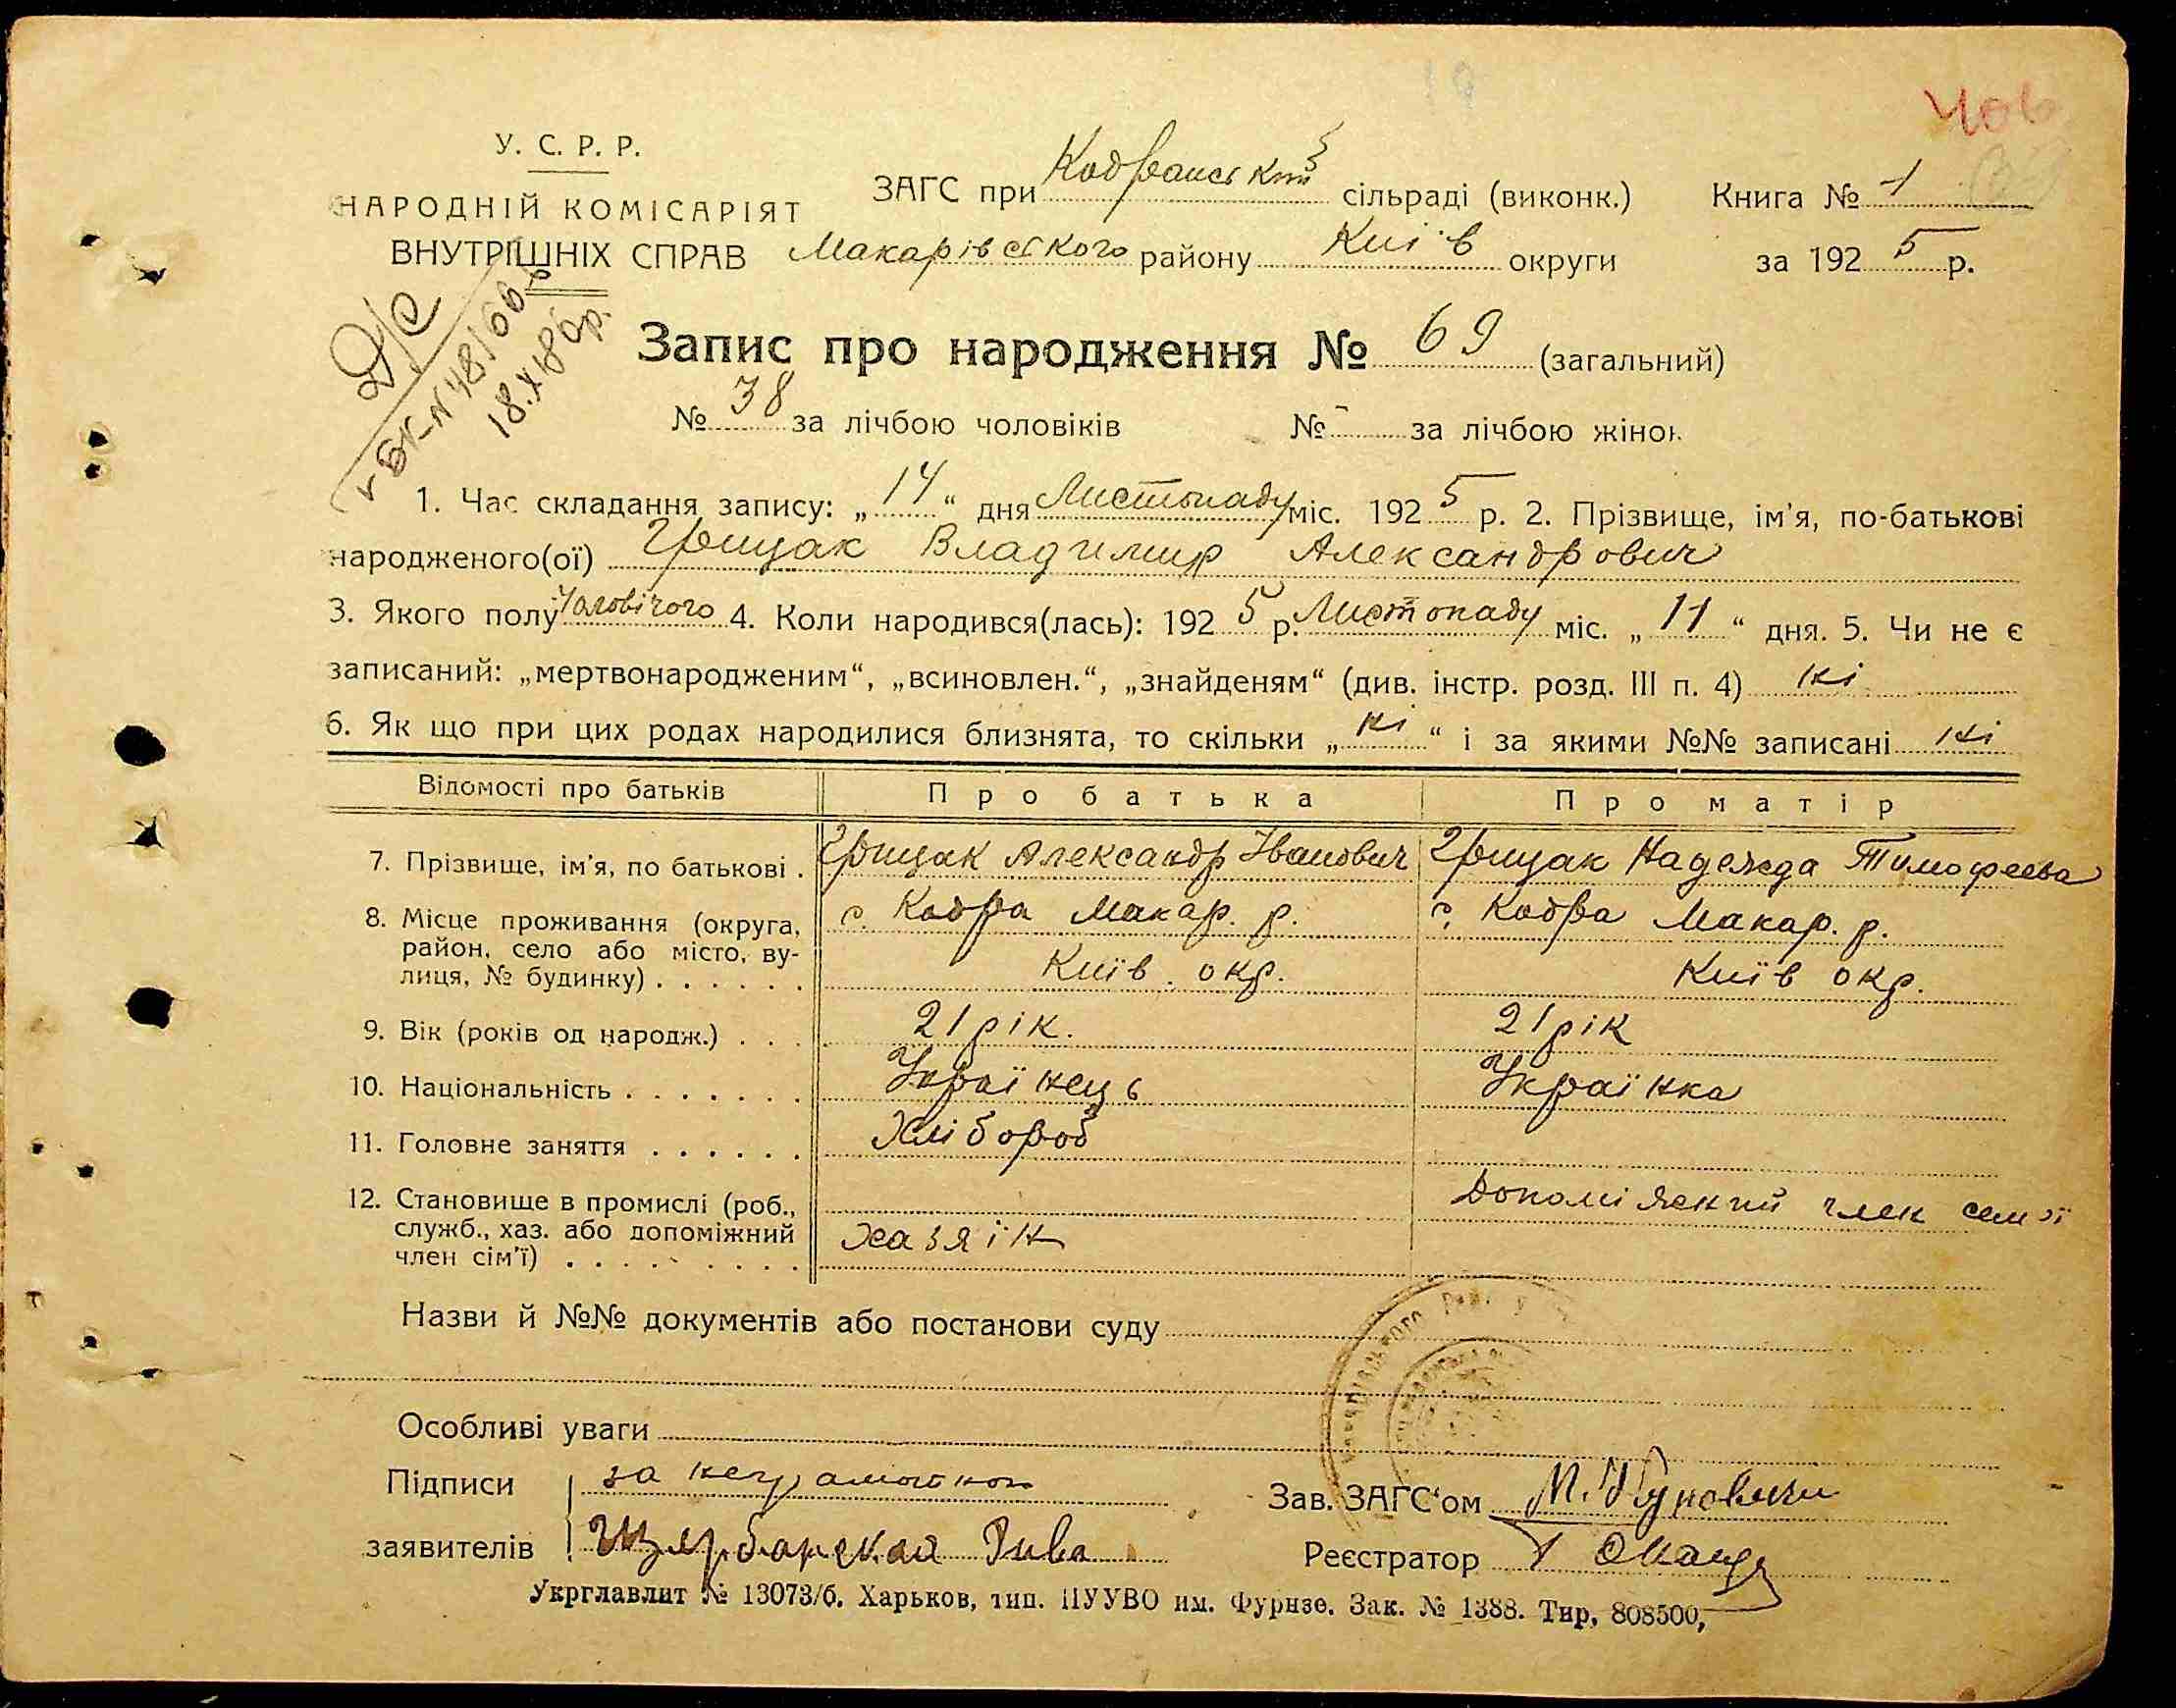 Чов
У. С. Р. Р.
НАРОДНІЙ КОМІСАРІЯТ
ВНУТРІШНІХ СПРАВ
ЗАГС при Кодранській сільраді (виконк.) Книга № 1
Макарівського району Київ округи за 1925 р.
18.X
Запис про народження № 69 (загальний)
№ 38 за лічбою чоловіків № - за лічбою жінок
1. Час складання запису: „14“ дня Листопаду міс. 1925 р. 2. Прізвище, ім'я, по-батькові
народженого(ої) Грицак Владимир Александрович
3. Якого полу Чоловічого 4. Коли народився(лась): 1925 р. Листопаду міс. „11“ дня. 5. Чи не є
записаний: „мертвонародженим“, „всиновлен.“, „знайденям“ (див. інстр. розд. III п. 4) ні
6. Як що при цих родах народилися близнята, то скільки „ні“ і за якими №№ записані ні
Відомості про батьків Про батька Про матір
7. Прізвище, ім'я, по батькові . Грицак Александр Іванович Грицак Надежда Тимофеева
8. Місце проживання (округа, с. Кодра Макар. р. с. Кодра Макар. р.
район, село або місто, ву-
лиця, № будинку) . . . . . . Київ. окр. Київ окр.
9. Вік (років од народж.) . . . 21 рік. 21 рік
10. Національність . . . . . . . Українець Українка
11. Головне заняття . . . . . . Хлібороб
12. Становище в промислі (роб., Допоміжний член семьї
служб., хаз. або допоміжний хазяїн
член сім'ї) . . . . . . . . .
Назви й №№ документів або постанови суду
Особливі уваги
Підписи за неграмотною Зав. ЗАГС'ом
заявителів Реєстратор
Укрглавлит № 13073/б. Харьков, тип. ПУУВО им. Фрунзе. Зак. № 1388. Тир. 808500,